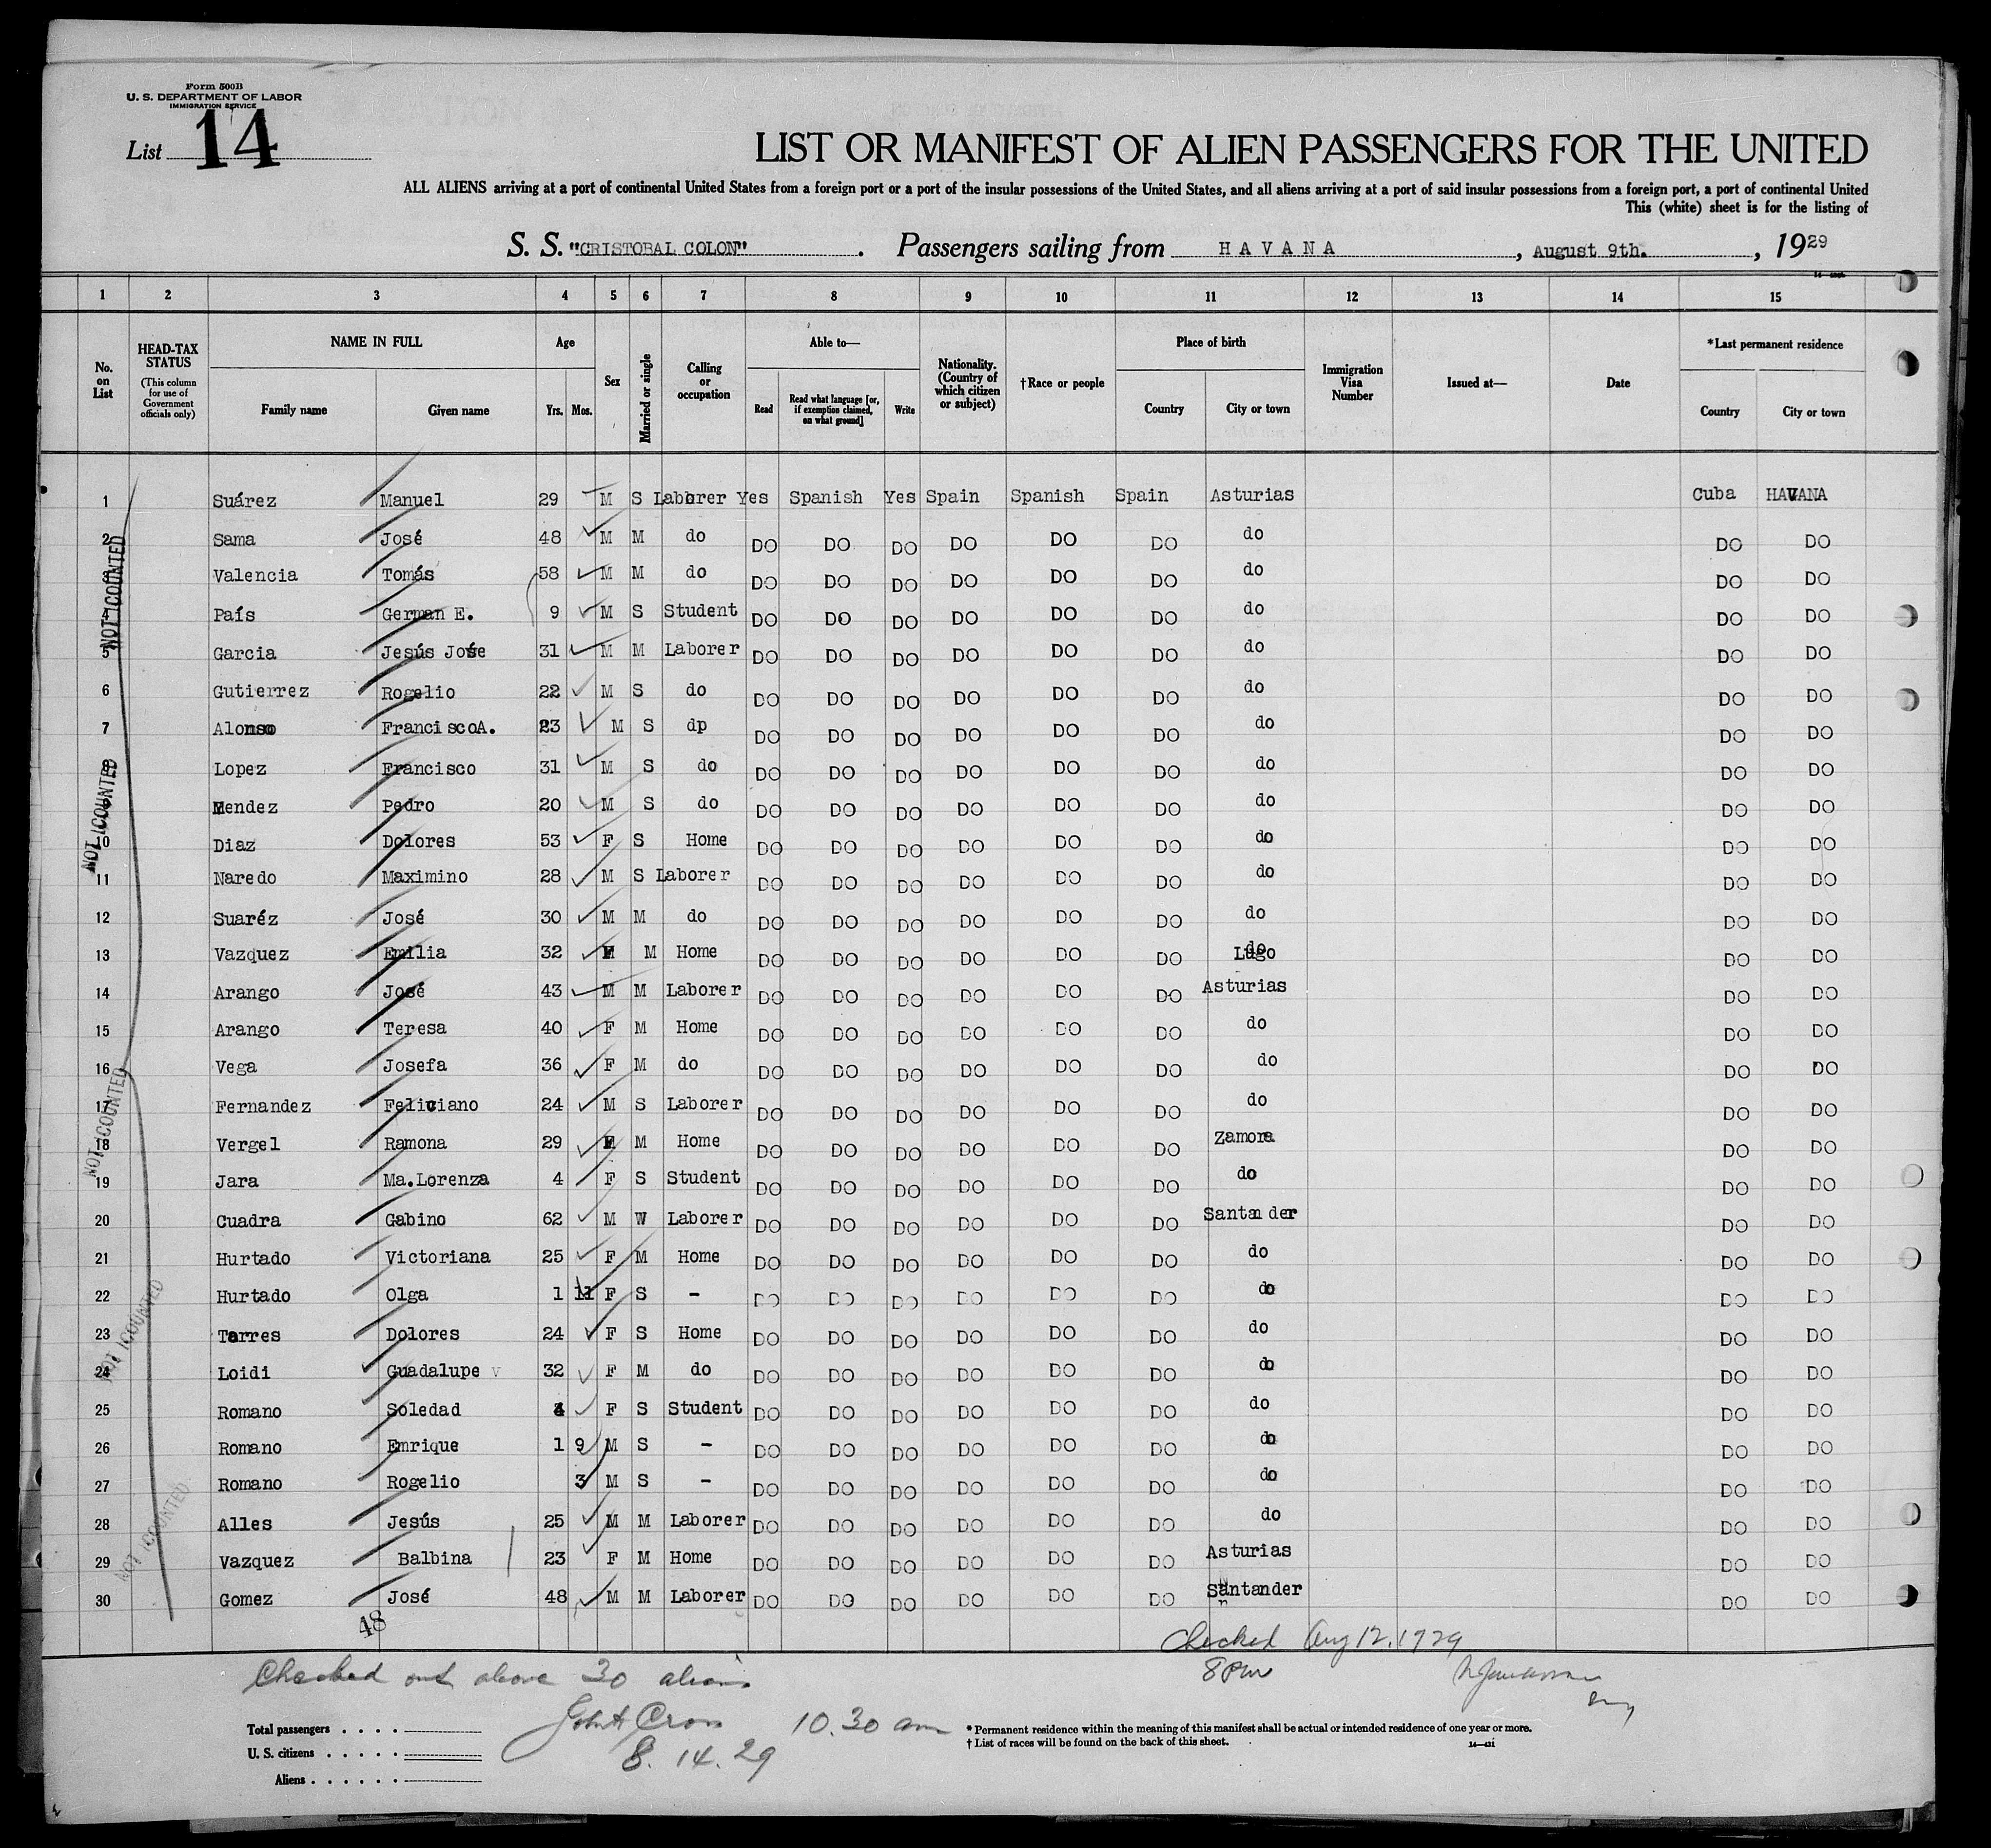 Form 500B
U. S. DEPARTMENT OF LABOR
IMMIGRATION SERVICE
List 14
LIST OR MANIFEST OF ALIEN PASSENGERS FOR THE UNITED
ALL ALIENS arriving at a port of continental United States from a foreign port or a port of the insular possessions of the United States, and all aliens arriving at a port of said insular possessions from a foreign port, a port of continental United
This (white) sheet is for the listing of
S. S. "CRISTOBAL COLON" . Passengers sailing from HAVANA , August 9th. , 1929
1 2 3 4 5 6 7 8 9 10 11 12 13 14 15
No. on List
HEAD-TAX STATUS
(This column for use of Government officials only)
NAME IN FULL
Family name Given name
Age
Yrs. Mos.
Sex
Married or single
Calling or occupation
Able to—
Read
Read what language [or, if exemption claimed, on what ground]
Write
Nationality. (Country of which citizen or subject)
†Race or people
Place of birth
Country City or town
Immigration Visa Number
Issued at—
Date
*Last permanent residence
Country City or town
1 Suárez Manuel 29 M S Laborer Yes Spanish Yes Spain Spanish Spain Asturias Cuba HAVANA
2 Sama José 48 M M do DO DO DO DO DO DO do DO DO
3 Valencia Tomás 58 M M do DO DO DO DO DO DO do DO DO
4 País German E. 9 M S Student DO DO DO DO DO DO do DO DO
5 Garcia Jesús José 31 M M Laborer DO DO DO DO DO DO do DO DO
6 Gutierrez Rogelio 22 M S do DO DO DO DO DO DO do DO DO
7 Alonso FranciscoA. 23 M S dp DO DO DO DO DO DO do DO DO
8 Lopez Francisco 31 M S do DO DO DO DO DO DO do DO DO
9 Mendez Pedro 20 M S do DO DO DO DO DO DO do DO DO
10 Diaz Dolores 53 F S Home DO DO DO DO DO DO do DO DO
11 Naredo Maximino 28 M S Laborer DO DO DO DO DO DO do DO DO
12 Suaréz José 30 M M do DO DO DO DO DO DO do DO DO
13 Vazquez Emilia 32 F M Home DO DO DO DO DO DO Lugo DO DO
14 Arango José 43 M M Laborer DO DO DO DO DO DO Asturias DO DO
15 Arango Teresa 40 F M Home DO DO DO DO DO DO do DO DO
16 Vega Josefa 36 F M do DO DO DO DO DO DO do DO DO
17 Fernandez Feliciano 24 M S Laborer DO DO DO DO DO DO do DO DO
18 Vergel Ramona 29 F M Home DO DO DO DO DO DO Zamora DO DO
19 Jara Ma.Lorenza 4 F S Student DO DO DO DO DO DO do DO DO
20 Cuadra Gabino 62 M W Laborer DO DO DO DO DO DO Santander DO DO
21 Hurtado Victoriana 25 F M Home DO DO DO DO DO DO do DO DO
22 Hurtado Olga 1 11 F S - DO DO DO DO DO DO do DO DO
23 Torres Dolores 24 F S Home DO DO DO DO DO DO do DO DO
24 Loidi Guadalupe v 32 F M do DO DO DO DO DO DO do DO DO
25 Romano Soledad F S Student DO DO DO DO DO DO do DO DO
26 Romano Enrique 1 9 M S - DO DO DO DO DO DO do DO DO
27 Romano Rogelio 3 M S - DO DO DO DO DO DO do DO DO
28 Alles Jesús 25 M M Laborer DO DO DO DO DO DO do DO DO
29 Vazquez Balbina 23 F M Home DO DO DO DO DO DO Asturias DO DO
30 Gomez José 48 M M Laborer DO DO DO DO DO DO Santander DO DO
NOT COUNTED
NOT COUNTED
NOT COUNTED
NOT COUNTED
NOT COUNTED
48
Checked Aug 12, 1929
8 PM
Checked out above 30 aliens
10.30 am
8. 14. 29
Total passengers . . . .
U. S. citizens . . . . .
Aliens . . . . . .
* Permanent residence within the meaning of this manifest shall be actual or intended residence of one year or more.
† List of races will be found on the back of this sheet.